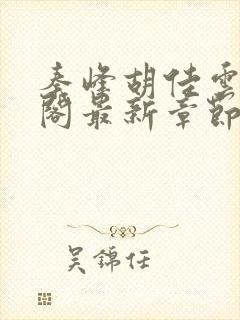 秦峰胡佳雲
閣最新章節
吴錦任